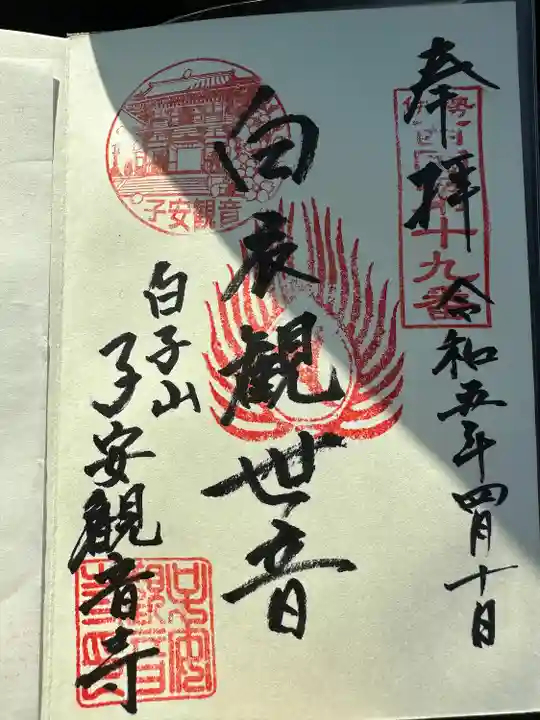 奉拝
令和五年四月十日
十九番
白衣観世音
子安観音
白子山
子安観音寺